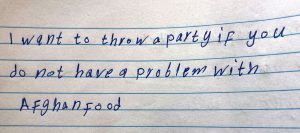 I want to throw a party if you
do not have a problem with
Afghan food